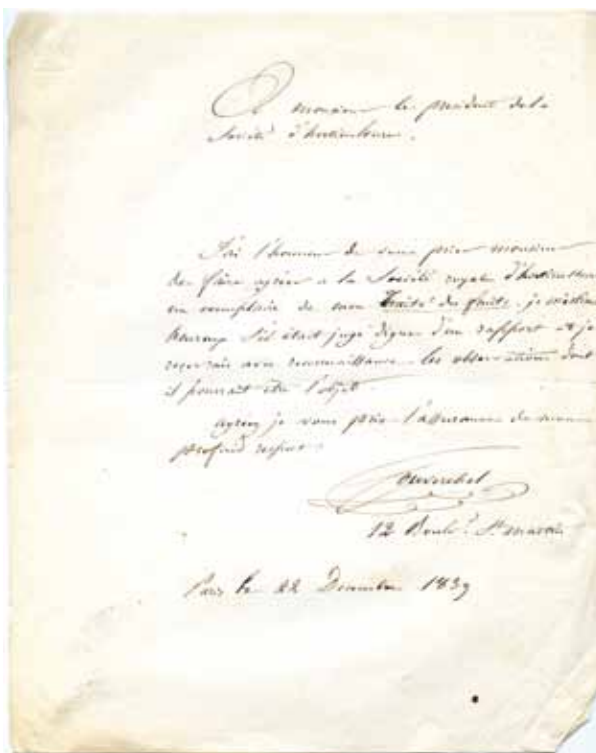 A monsieur le président de la
Société d'horticulture.
J'ai l'honneur de vous prier monsieur
de faire agréer a la Société royale d'horticulture
un exemplaire de mon Traité des fruits, je m'estime
heureux s'il était jugé digne d'un rapport et je
recevrais avec reconnaissance les observations dont
il pourrait être l'objet
agréez je vous prie l'assurance de mon
profond respect.
Couverchel
12 Boulev.d St martin
Paris le 22 Decembre 1839